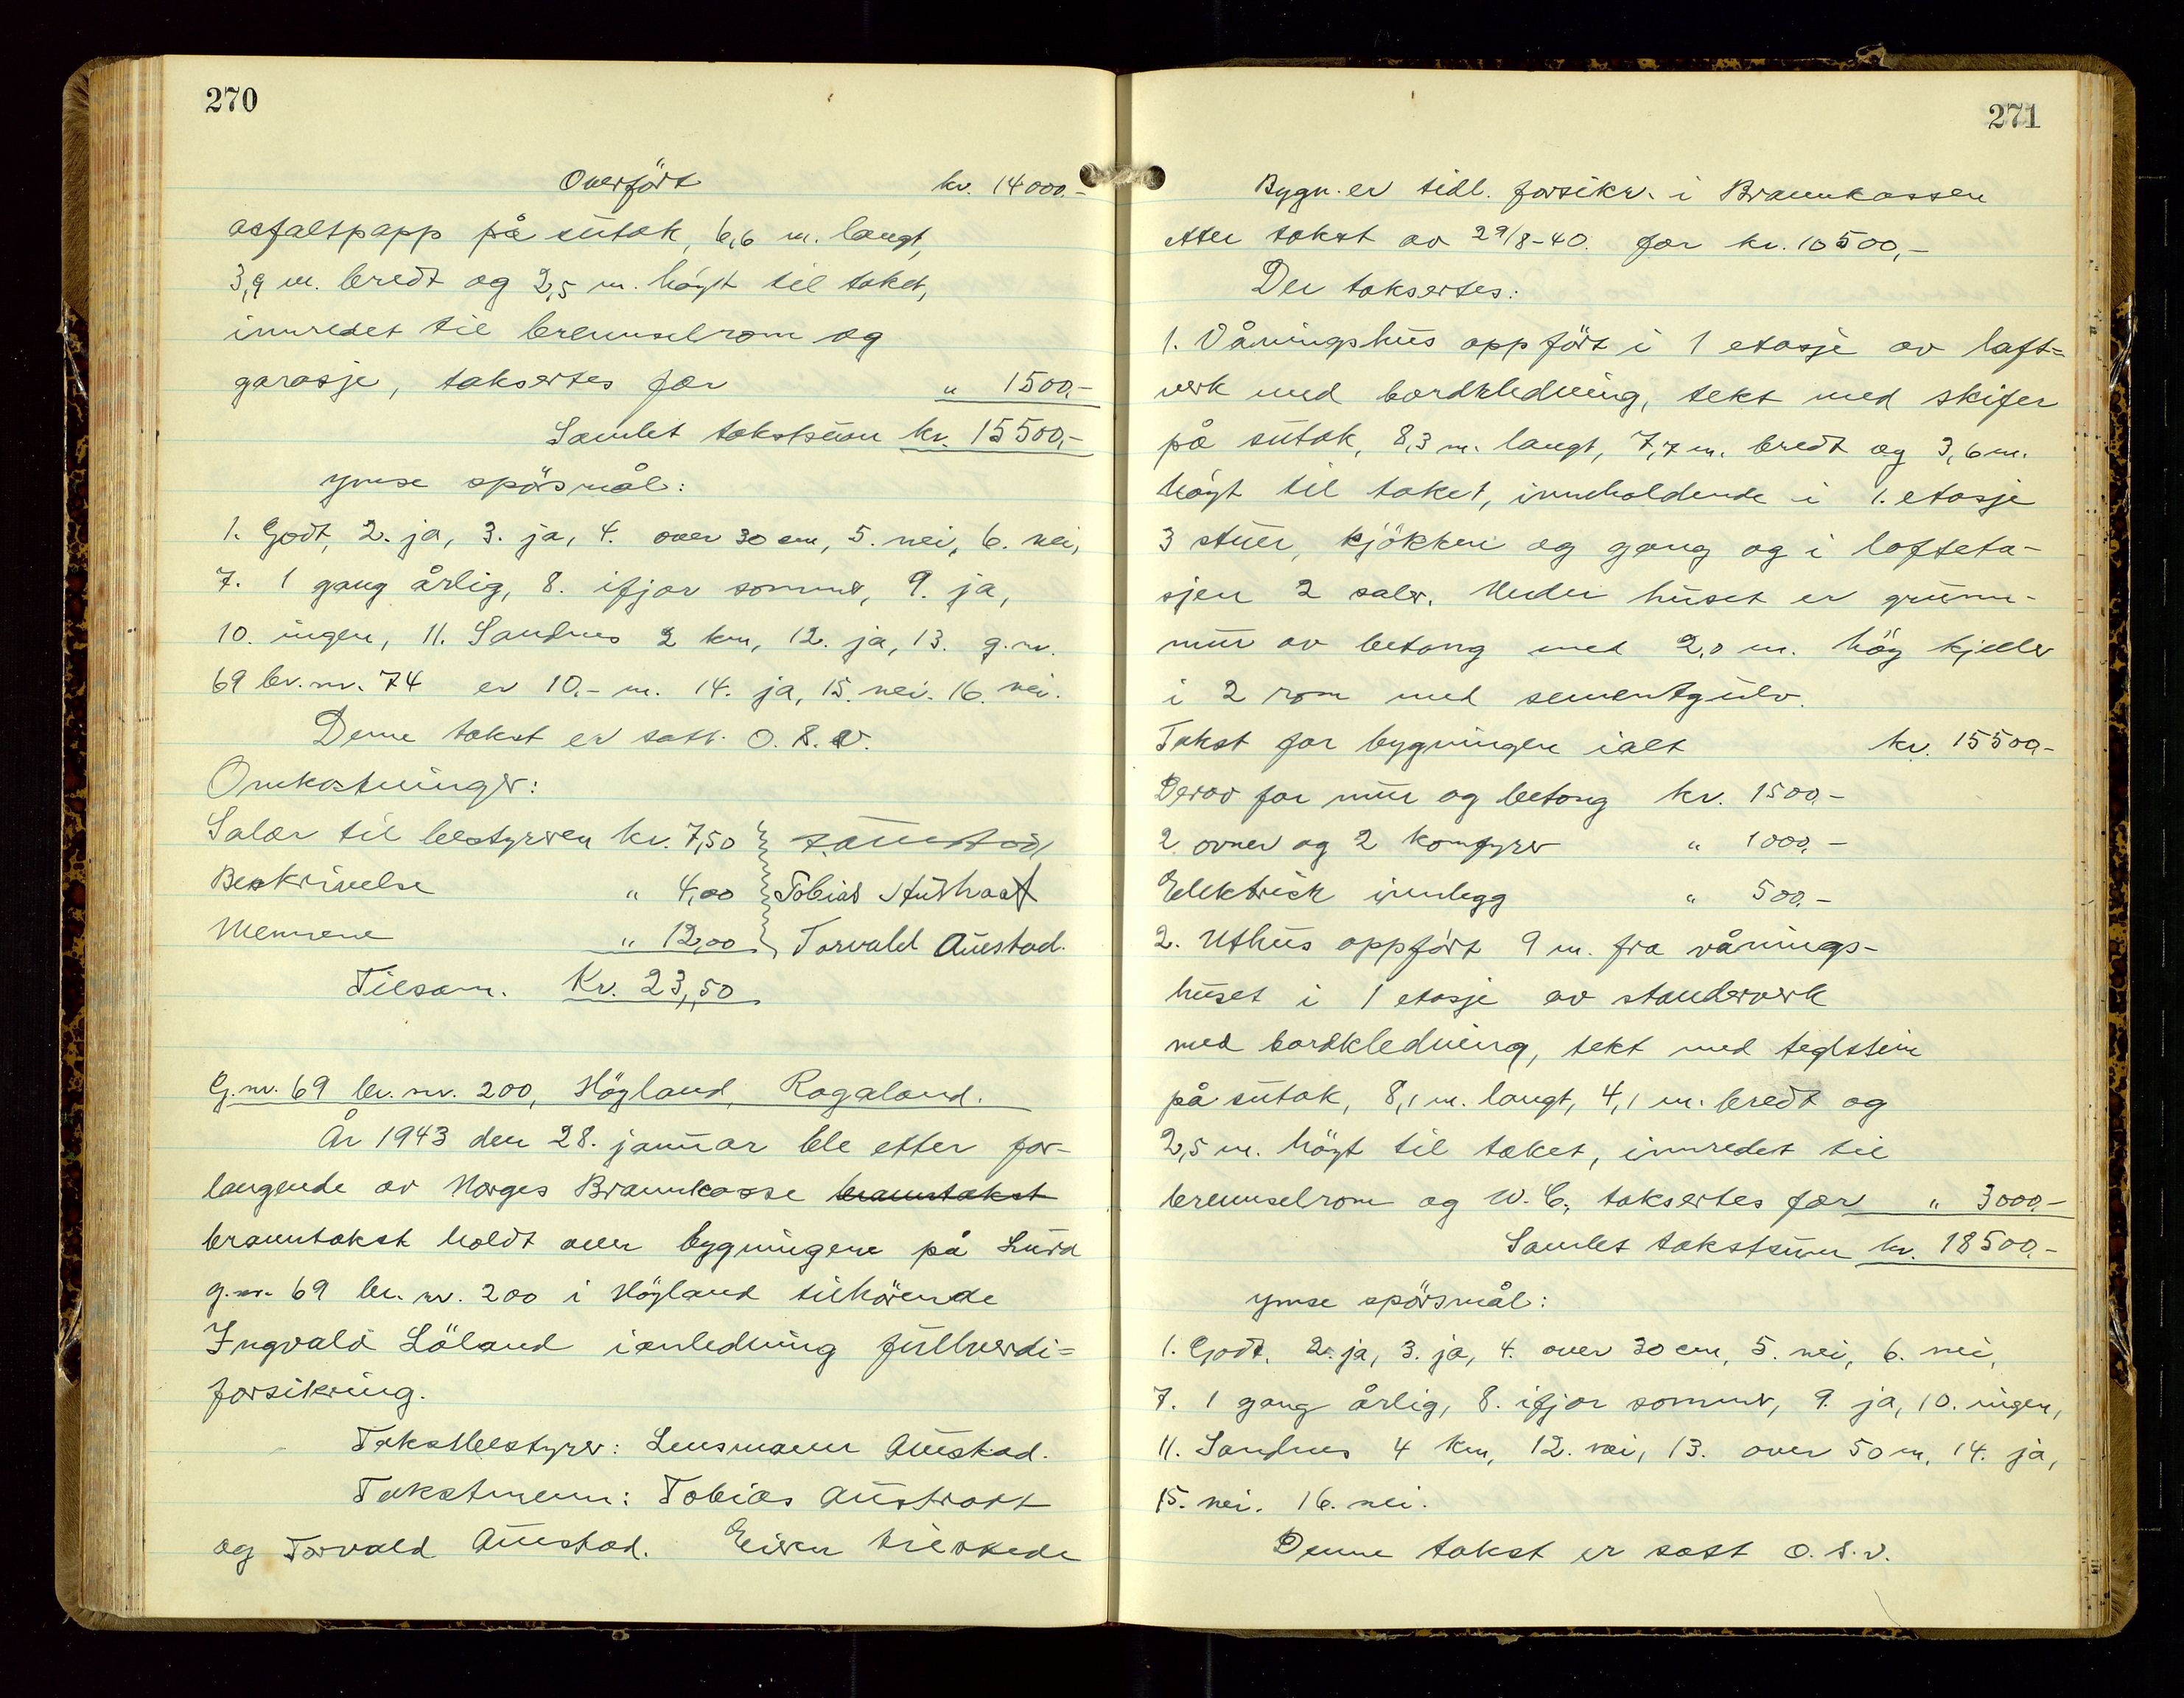 270
Overfört kr. 14000.-
asfaltpapp på sutak, 6,6 m. langt,
3,9 m. bredt og 2,5 m. høyt til taket,
innredet til brenselrom og
garasje, taksertes for " 1500.-
Samlet takstsum kr. 15500,-
ymse spörsmål:
1. Godt, 2. ja, 3. ja, 4. over 30 cm, 5. nei, 6. nei,
7. 1 gang årlig, 8. ifjor sommer, 9. ja,
10. ingen, 11. Sandnes 2 km, 12. ja, 13. g.nr.
69 br.nr. 74 er 10,- m. 14. ja, 15. nei. 16. nei.
Denne takst er satt O.S.V.
Omkostninger:
Salær til bestyreren kr. 7,50
Beskrivelse " 4,00 Tobias Austraat
Mennene " 12,00 Torvald Auestad.
Tilsam. Kr. 23,50
G.nr. 69 br. nr. 200, Høyland, Rogaland.
År 1943 den 28. januar ble etter for-
langende av Norges Brannkasse branntakst
branntakst holdt over bygningene på Lura
g.nr. 69 br. nr. 200 i Høyland tilhörende
Ingvald Löland ianledning fullverdi=
forsikring.
Takstbestyrer: Lensmann Auestad.
Takstmenn: Tobias Austratt
og Torvald Auestad. Eieren tilstede
271
Bygn. er tidl. forsikr. i Brannkassen
etter takst av 29/8-40. for kr. 10500,-
Der taksertes:
1. Våningshus oppfört i 1 etasje av laft=
verk med bordkledning, tekt med skifer
på sutak, 8,3 m. langt, 7,7 m. bredt og 3,6 m.
høyt til taket, inneholdende i 1. etasje
3 stuer, kjökken og gang og i lofteta-
sjen 2 saler. Under huset er grunn-
mur av betong med 2,0 m. høg kjeller
i 2 rom med sementgulv.
Takst for bygningen ialt kr. 15500,-
Derav for mur og betong kr. 1500.-
2 ovner og 2 komfyrer " 1000,-
Elektrisk innlegg " 500.-
2. Uthus oppfört 9 m. fra vånings-
huset i 1 etasje av standerverk
med bordkledning, tekt med teglstein
på sutak, 8,1 m. langt, 4,1 m. bredt og
2,5 m. høyt til taket, innredet til
brenselrom og W.C., taksertes for " 3000.-
Samlet takstsum kr. 18500.-
ymse spörsmål:
1. Godt. 2. ja, 3. ja, 4. over 30 cm, 5. nei, 6. nei,
7. 1 gang årlig, 8. ifjor sommer, 9. ja, 10. ingen,
11. Sandnes 4 km, 12. nei, 13. over 50 m, 14. ja,
15. nei. 16. nei.
Denne takst er satt O.S.V.